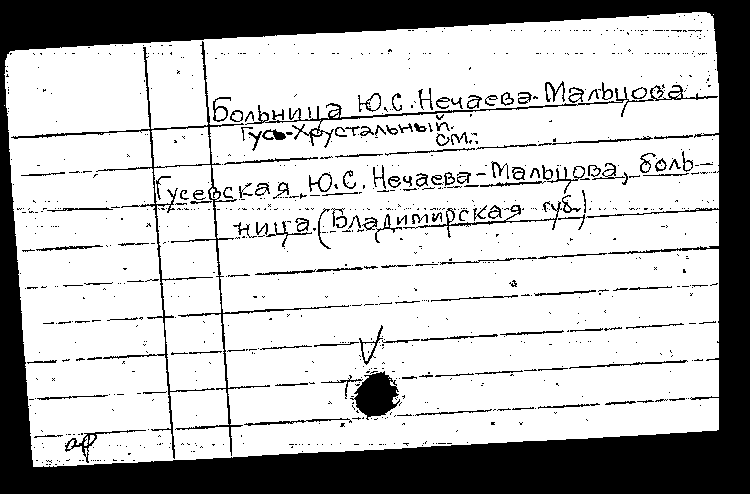 Больница Ю.С. Нечаева-Мальцова.
Гусь-Хрустальный.
см.:
Гусевская Ю.С. Нечаева-Мальцова, боль-
ница (Владимирская губ.)
ар